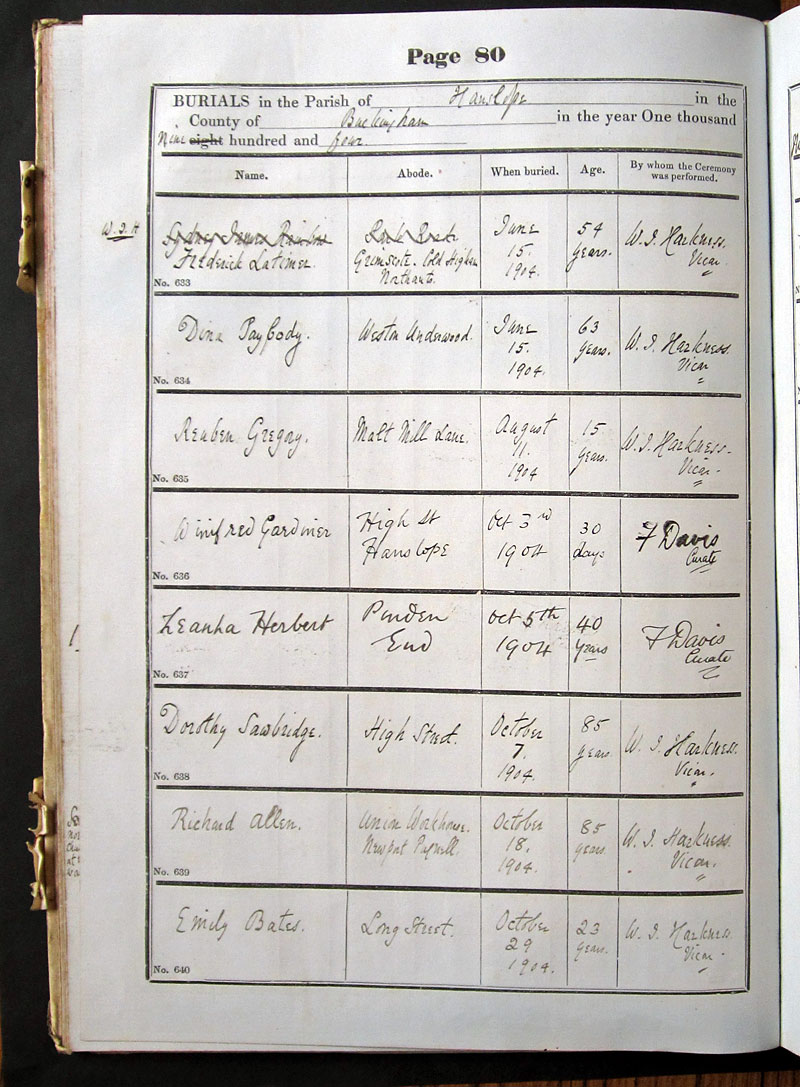 Page 80
BURIALS in the Parish of Hanslope in the
County of Buckingham in the year One thousand
Nine eight hundred and four.
Name. Abode. When buried. Age. By whom the Ceremony was performed.
W. J. H
Frederick Latimer. Grimscote. Cold Higham Northants. June 15. 1904. 54 years. W. J. Harkness. Vicar
No. 633
Dina Paybody. Weston Underwood. June 15. 1904. 63 years. W. J. Harkness. Vicar
No. 634
Reuben Gregory. Malt Mill Lane. August 11. 1904 15 years. W. J. Harkness. Vicar.
No. 635
Winifred Gardiner High St Hanslope Oct 3rd 1904 30 days F Davis Curate
No. 636
1.
Leanha Herbert Pinden End Oct 5th 1904 40 years F Davis Curate
No. 637
Dorothy Sawbridge. High Street. October 7. 1904. 85 years. W. J. Harkness. Vicar.
No. 638
Richard Allen. Union Workhouse. Newport Pagnell. October 18. 1904. 85 years W. J. Harkness. Vicar.
No. 639
Emily Bates. Long Street. October 29 1904. 23 years. W. J. Harkness. Vicar
No. 640